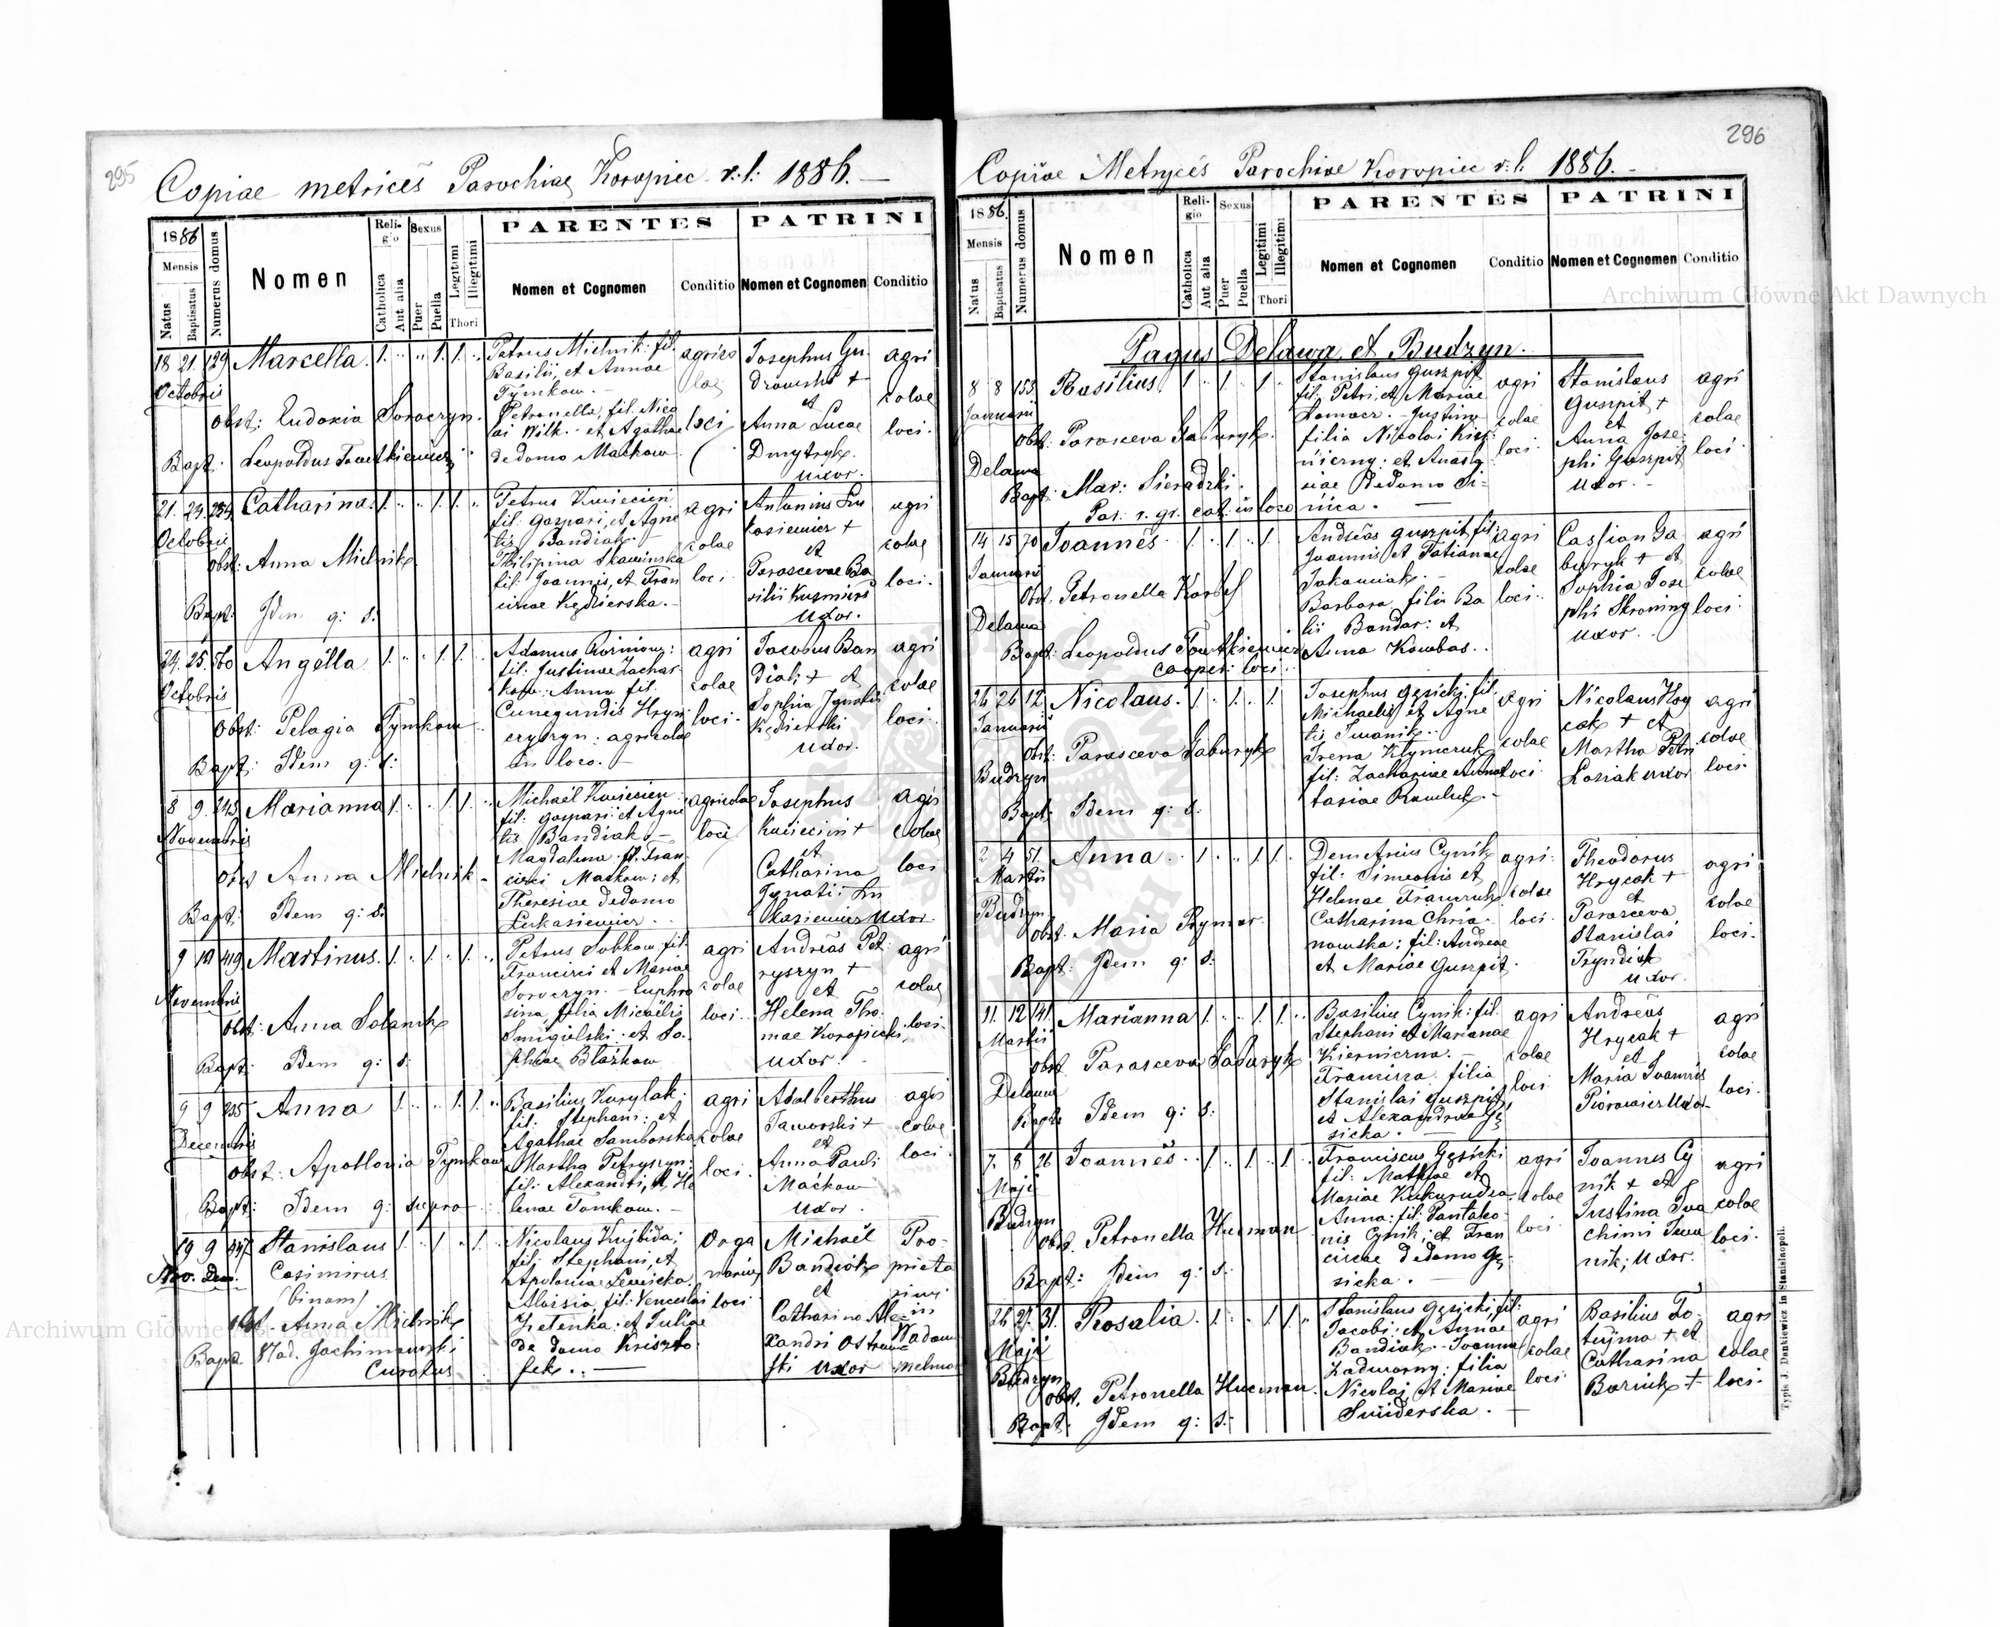 295
Copiae metrices Parochiae Koropiec r: l: 1886. —
1886
Mensis
Natus
Baptisatus
Numerus domus
Nomen
Religio
Catholica
Aut alia
Sexus
Puer
Puella
Legitimi
Illegitimi
Thori
PARENTES
Nomen et Cognomen
Conditio
PATRINI
Nomen et Cognomen
Conditio
18 21. 129 Marcella.
Octobris
Obst: Eudoxia Soroczyn.
Bapt: Leopoldus
Petrus Mielnik: fil.
Basilii, et Annae
Tymkow. —
Petronella, fil. Nico
lai Wilk. et Agathae
de domo Maćkow.
agrico
lae
loci
Josephus
+
et
Anna Lucae
Dmytryk.
uxor.
agri
colae
loci.
21. 24. Catharina.
Octobris
Obst: Anna Mielnik
Bapt: Idem q: s:
Petrus Kwiecień
fil: Gaspari, et Agne
tis Bandiak.
Philipina Skawinska
fil: Joannis, et Fran
ciscae Kędzierska. —
agri
colae
loci.
Antonius Lu
kasiewicz +
et
Parasceva Ba
silii
uxor.
agri
colae
loci.
24. 25. 560 Angella
Octobris
Obst: Pelagia Tymkow
Bapt: Idem q: s:
Adamus
fil: Justinae Zachar
kow. Anna fil.
Cunegundis Hryn
agricolae
in loco. —
agri
colae
loci.
Jacobus Ban
diak + et
Sophia Ignatii
Kędzierski
uxor.
agri
colae
loci.
8 9. 245 Marianna
Novembris
Obst Anna Mielnik
Bapt: Idem q: s:
Michaël Kwiecien
fil: Gaspari: et Agne
tis Bandiak. —
Magdalena fil. Fran
cisci Maćkow: et
Theresiae de domo
Łukasiewicz . .
agricolae
loci
Josephus
Kwiecień +
et
Catharina
Ignatii Łu
kasiewicz uxor
agri
colae
loci
9 12 419 Martinus.
Novembris
Obst: Anna Solanik
Bapt: Idem q: s:
Petrus Sobkow fil:
Francisci et Mariae
Soroczyn. — Euphro
sina filia Micaëlis
Smigielski. et So.
phiae Blażkow
agri
colae
loci.
Andreäs Pet
ryszyn +
et
Helena Tho.
mae
uxor.
agri
colae
loci.
9 9 235 Anna
Decembris
Obst: Apollonia Tymkow
Bapt: Idem q: supra
Basilius Kurylak:
fil: Stephani: et
Agathae Samborska
Martha Petryszyn:
fil: Alexandri, et He
lenae Tomkow. —
agri
colae
loci
Adalberthus
Jaworski +
et
Anna Pauli
Maćkow
uxor.
agri
colae
loci.
19 9 447 Stanislaus
Nov. Dec. Casimirus
(binam)
Obst. Anna Mielnik
Bapt Vlad. Jachimowski
Curatus
Nicolaus Kuybida;
fil: Stephani, et
Apoloniae Lewicka.
Aloisia, fil: Venceslai
Zelenka: et Juliae
de domo Kriszto
fek. . —
orga
narius
loci
Michaël
Bandiak
et
Catharina Ale
xandri Ostrow
ski uxor
Pro-
prieta
rius
in
296
Copiae Metryces Parochiae Koropiec r: l. 1886. —
1886.
Mensis
Natus
Baptisatus
Numerus domus
Nomen
Religio
Catholica
Aut alia
Sexus
Puer
Puella
Legitimi
Illegitimi
Thori
PARENTES
Nomen et Cognomen
Conditio
PATRINI
Nomen et Cognomen
Conditio
Pagus Delawa et Budzyn.
8 8 153. Basilius
Januarii
Obst: Parasceva Saburyk.
Delawa
Bapt: Mar: Sieradzki.
Par. r. gr. cat. in loco
Stanislaus Guszpit
fil. Petri, et Mariae
Justina
filia Nicolai
et Anasta
siae de domo
agri
colae
loci.
Stanislaus
Guszpit +
et
Anna Jose
phi Guszpit
uxor. —
agri
colae
loci.
14 15 70 Joannes.
Januarii
Obst. Petronella
Delawa
Bapt: Leopoldus
cooper. loci.
Andreas Guszpit fil:
Joannis et Tatianae
Barbara filia Ba
lii Bondar: et
Anna Kowbas..
agri
colae
loci.
Cassian Ga
buryk + et
Sophia Jose
phi Skroning
uxor.
agri
colae
loci.
26 26 12 Nicolaus.
Januarii
Obst: Parasceva Saburyk
Budzyn
Bapt: Idem q: s:
Josephus Gęsicki: fil.
Michaelis et Agne
tis Iwanik.
Irena Klymczuk
fil: Zachariae et Anas
tasiae
agri
colae
loci.
Nicolaus Hry
cak + et
Martha Petri
Łoziak uxor
agri
colae
loci.
2 4 51. Anna
Martii
Budzyn
Obst: Maria Rymar.
Bapt: Idem q: s:
Demetrius Cynik
fil: Simeonis et
Helenae
Catharina Chrza-
nowska; fil: Andreae
et Mariae Guszpit.
agri.
colae
loci.
Theodorus
Hrycak +
et
Parasceva
Stanislai
Tryndiak
uxor.
agri
colae
loci.
11. 12 141. Marianna
Martii
Obst Parasceva Saburyk
Delawa
Bapt: Idem q: s:
Basilius Cynik: fil.
Stephani et Marianae
Kierniczna. —
Francisca filia
Stanislai Guszpit
et Alexandra Gę
sicka. —
agri
colae
loci
Andreäs
Hrycak +
et
Maria Joannis
uxor
agri
colae
loci.
7. 8 26 Joannes.
Maji
Budzyn
Obst. Petronella Hucman
Bapt: Idem q: s:
Franciscus Gęsicki
fil: Mathiae et
Mariae Kukurudza.
Anna: fil: Pantaleo-
nis Cynik; et Fran
ciscae de domo Gę
sicka. —
agri
colae
loci.
Joannes Cy
nik + et
Justina Joa
chimi Iwa
nik; uxor.
agri
colae
loci.
26 27 31. Rosalia.
Maji
Budzyn
Obst. Petronella Hucman.
Bapt. Idem q: s:
Stanislaus Gęsicki fil:
Jacobi: et Annae
Bandiak. Joanna
Zadworny: filia
Nicolai et Mariae
Świderska. —
agri
colae
loci
Basilius Fo
tujma + et
Catharina
+
agri
colae
loci.
Typis J. Dankiewicz in Stanislaopoli.
Archiwum Główne Akt Dawnych
Archiwum Główne Akt Dawnych